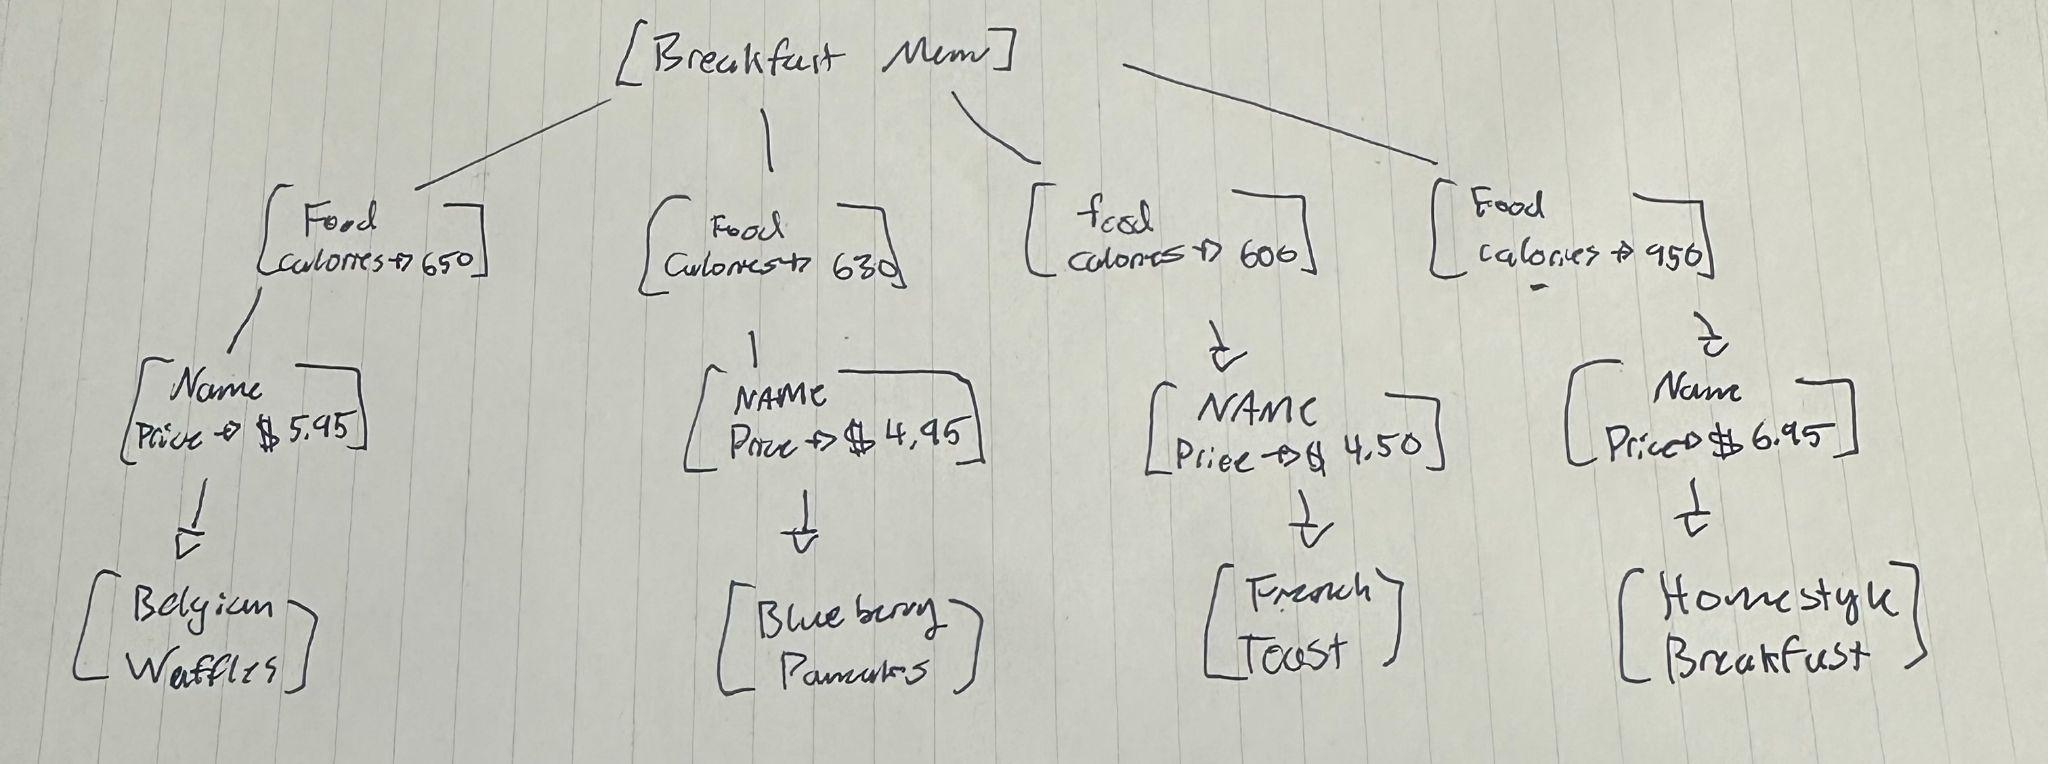 [Breakfast Menu]
[Food
calories → 650]
[Food
Calories → 630]
[food
calories → 600]
[Food
calories → 950]
[Name
Price → $ 5.95]
[NAME
Price → $ 4.95]
[NAME
Price → $ 4.50]
[Name
Price → $ 6.95]
[Belgian
Waffles]
[Blueberry
Pancakes]
[French
Toast]
[Homestyle
Breakfast]